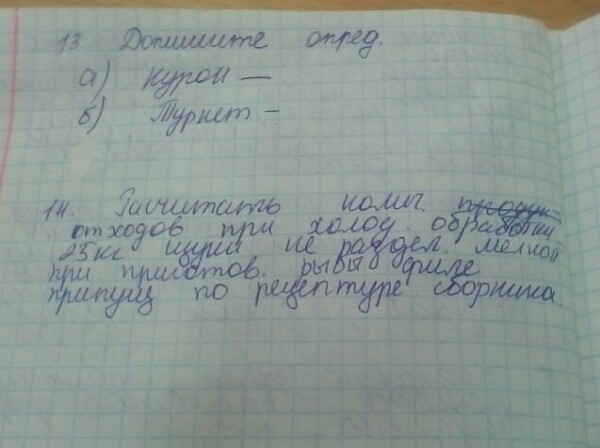 13. Допишите опред.
а) Курон —
б) Турнет -
14. Расчитать колич.
отходов при холод. обработки
25кг щуки не раздел. мелкой
при приготов. рыбы филе
припущ по рецептуре сборника.